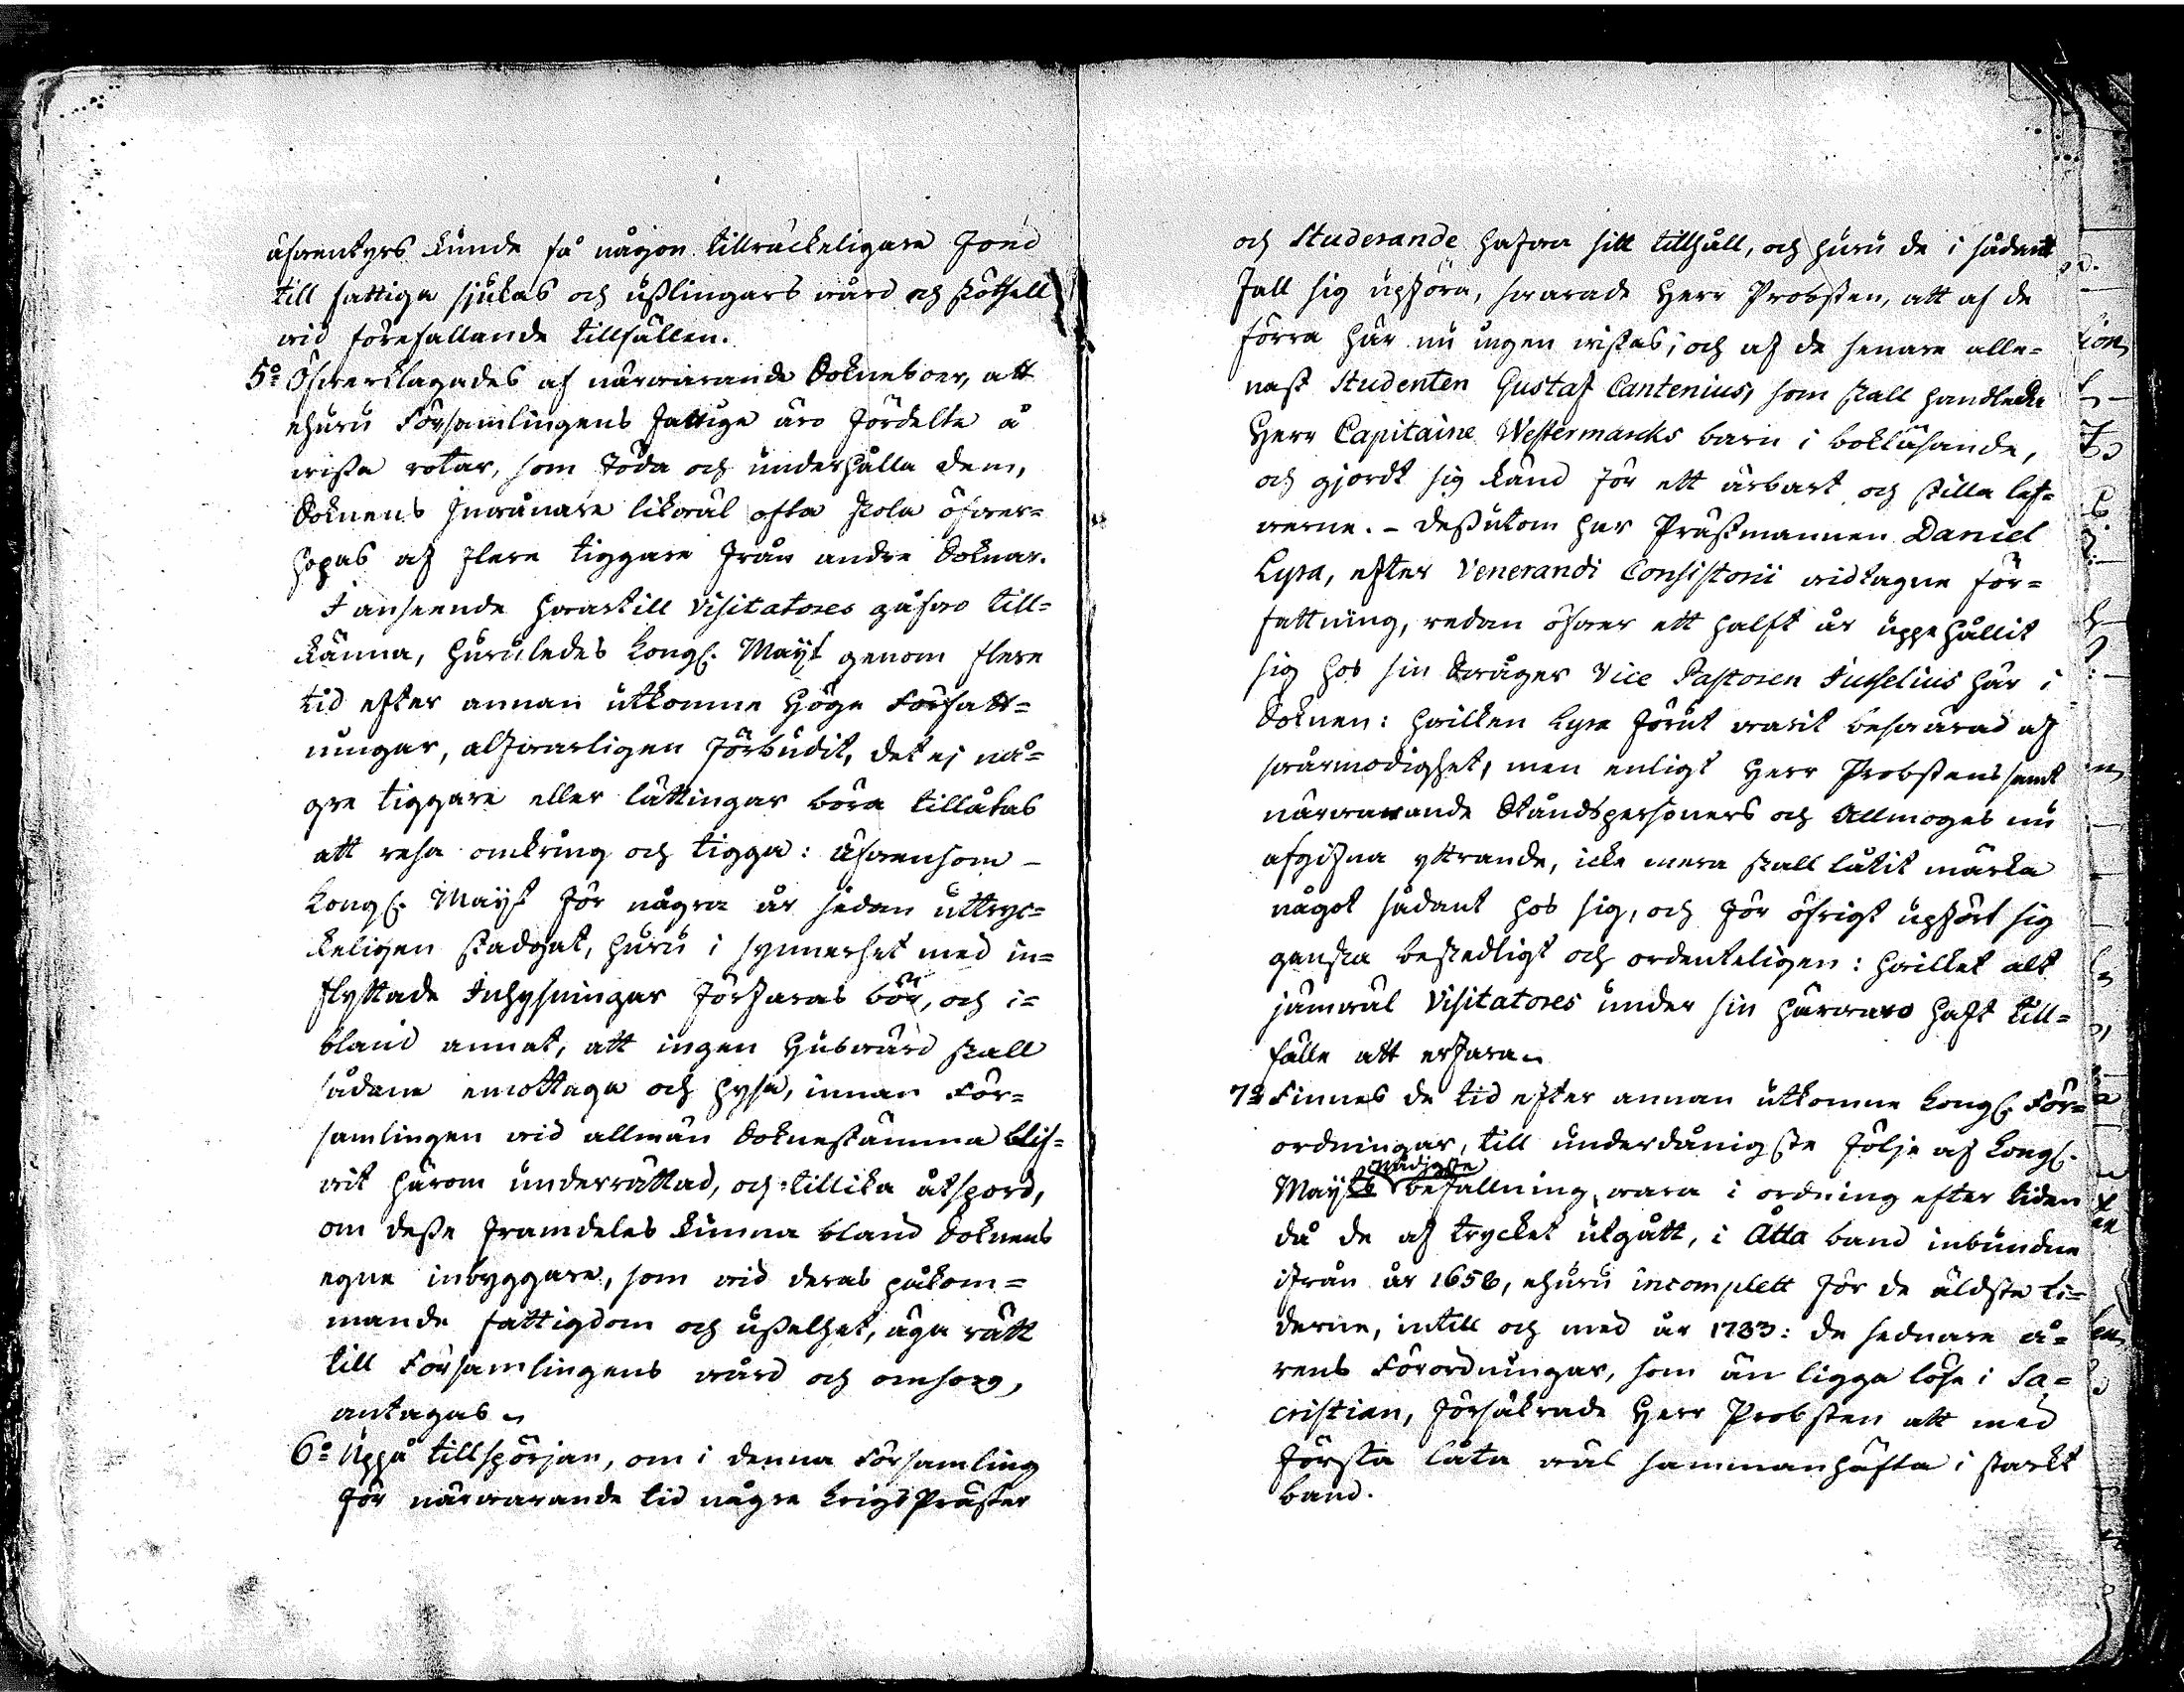 äfwentyrs kunde få någon tillräckeligare fond
till fattiga sjukas och ußlingars wård och skötsell
wid förefallande tillfällen.
5:o Öfwerklagades af närwarande Sokneboer, att
ehuru Församlingens fattige äro fördelte å
wißa rotar, som föda och underhålla dem,
Soknens Inwånare likwäl ofta skola öfwer=
hopas af flere tiggare från andre Soknar.
I anseende hwartill Visitatores gåfwo till=
känna, huruledes Kongl. Mayt genom flere
tid efter annan utkomne höge Författ=
ningar, alfwarligen förbudit, det ej nå=
gre tiggare eller lättingar böra tillåtas
att resa omkring och tigga: äfwensom –
Kongl. Mayt för några år sedan uttryc=
keligen stadgat, huru i synnerhet med in=
flyttade Inhysningar förfaras bör, och i=
bland annat, att ingen Huswärd skall
sådane emottaga och hysa, innan För=
samlingen wid allmän Soknestämma blif=
wit härom underrättad, och tillika åtspord,
om deße framdeles kunna bland Soknens
egne inbyggare, som wid deras påkom=
mande fattigdom och ußelhet, äga rätt
till Församlingens wård och omsorg,
antagas.
6:o Uppå tillspörjan, om i denna Församling
för närwarande tid någre KrigsPräster
och Studerande hafwa sitt tillhåll, och huru de i sådant
fall sig upföra, swarade Herr Probsten, att af de
förra här nu ingen wistas; och af de senare alle=
nast Studenten Gustaf Cantenius, som skall handleda
Herr Capitaine Westermarcks barn i bokläsande,
och gjordt sig känd för ett ärbart och stilla lef=
werne. – Deßutom har Prästmannen Daniel
Lyra, efter Venerandi Consistorii widtagne för=
fattning, redan öfwer ett halft år uppehållit
sig hos sin Swåger Vice Pastoren Juselius här i
Soknen: hwilken Lyra förut warit beswärad af
swårmodighet, men enligt Herr Probstens samt
närwarande Ståndspersoners och Allmoges nu
afgifna yttrande, icke mera skall låtit märka
något sådant hos sig, och för öfrigt upfört sig
ganska beskedligt och ordenteligen: hwilket alt
jämwäl Visitatores under sin härwaro haft till=
fälle att erfara.
7:o Finnes de tid efter annan utkomne Kongl. För=
ordningar, till underdånigste följe af Kongl.
nådigste
Mayts befallning, wara i ordning efter tiden
då de af trycket utgått, i Åtta band inbundne
ifrån år 1656, ehuru incomplett för de äldste ti=
derne, intill och med år 1783: de sednare å=
rens Förordningar, som än ligga löse i Sa=
cristian, försäkrade Herr Probsten att med
första låta wäl sammanhäfta i starkt
band.